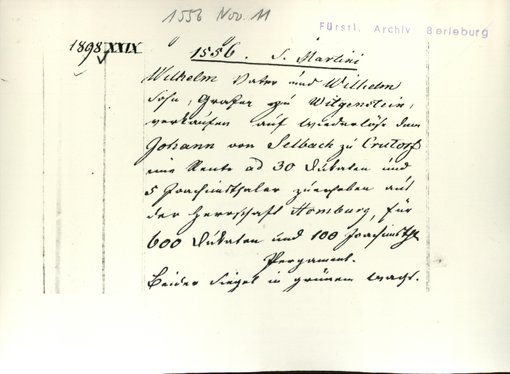 1556 Nov 11
Fürstl. Archiv Berleburg
1898 XXIX
1556. S. Martini
Wilhelm Vater und Wilhelm
Sohn, Grafen zu Witgenstein,
verkaufen auf Wiederlöse dem
Johann von Selbach zu Crutorf
eine Rente ad 30 Dukaten und
5 Joachimsthaler zuerheben aus
der Herrschaft Homburg, für
600 Dukaten und 100 Joachimsth.
Pergament.
Beider Siegel in grünem Wachs.